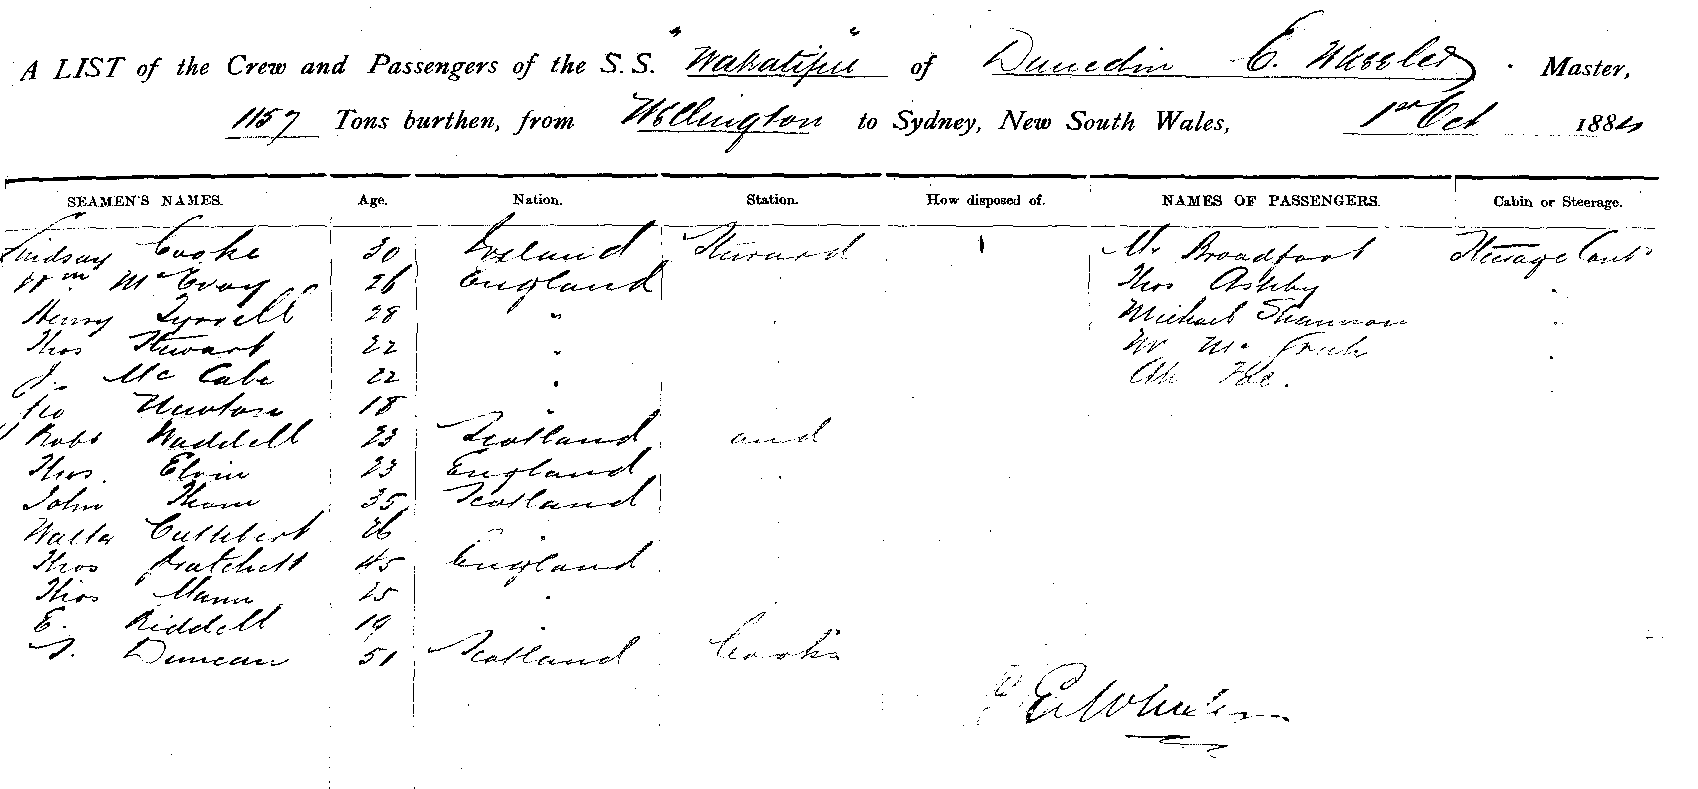 A LIST of the Crew and Passengers of the S.S. "Wakatipu" of Dunedin E. Wheeler Master,
1157 Tons burthen, from Wellington to Sydney, New South Wales, 1st Oct 1884
SEAMEN'S NAMES. Age. Nation. Station. How disposed of. NAMES OF PASSENGERS. Cabin or Steerage.
Lindsay Cooke 30 Ireland Steward Mr Broadfoot Steerage Cont
Wm McEvoy 26 England Thos Ashby
Henry Tyrrell 28 " Michael Shannon
Thos Stewart 22 " Mc
J. McCabe 22 " Ah
Geo Newton 18 "
Robt Waddell 23 Scotland and
Thos. Elvin 23 England
John Thom 35 Scotland
Walter Cuthbert 26 "
Thos Pratchett 45 England
Thos Mann 25 "
E. Riddell 19 "
Duncan 51 Scotland Cooks
E Wheeler